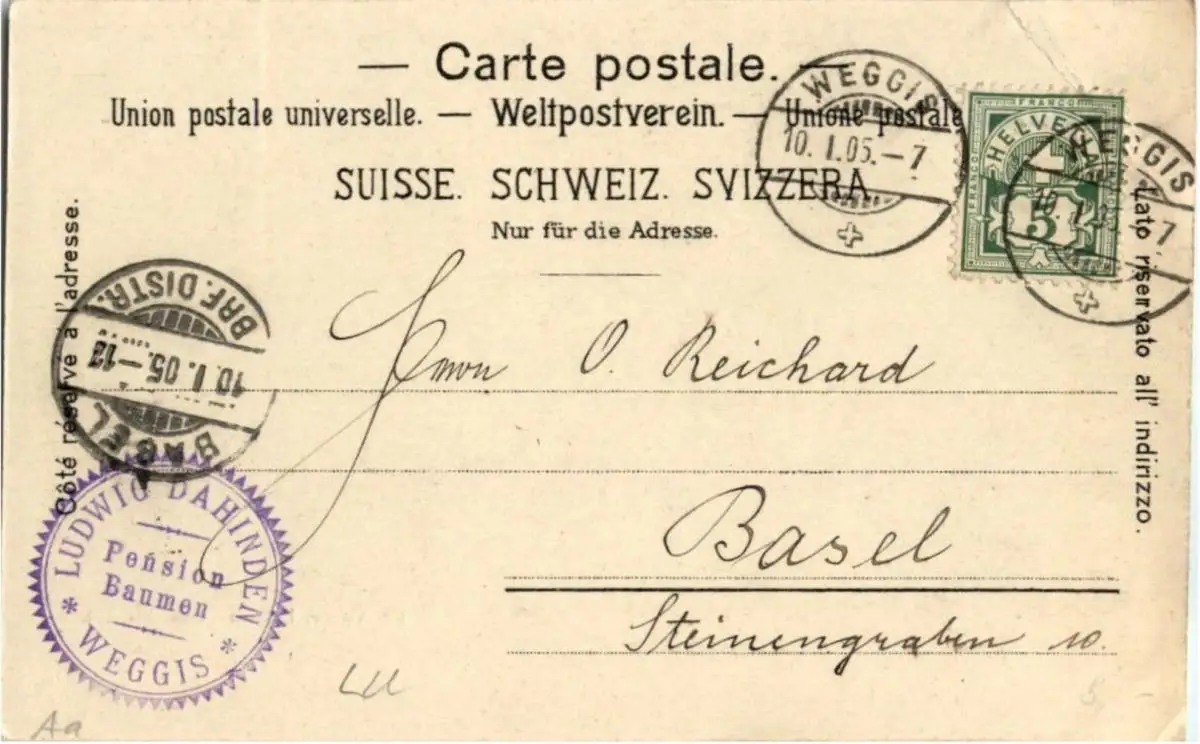 — Carte postale. —
Union postale universelle. — Weltpostverein. — Unione postale
SUISSE. SCHWEIZ. SVIZZERA
Nur für die Adresse.
Côté réservé à l'adresse.
Lato riservato all' indirizzo.
WEGGIS
10. I. 05. – 7
FRANCO
HELVETIA
5
WEGGIS
10. I. 05. – 7
BRF. DISTR.
10. I. 05. –
BASEL
O. Reichard
Basel
Steinengraben 10.
LUDWIG DAHINDEN
Pension
Baumen
* WEGGIS *
LU
Aa
5